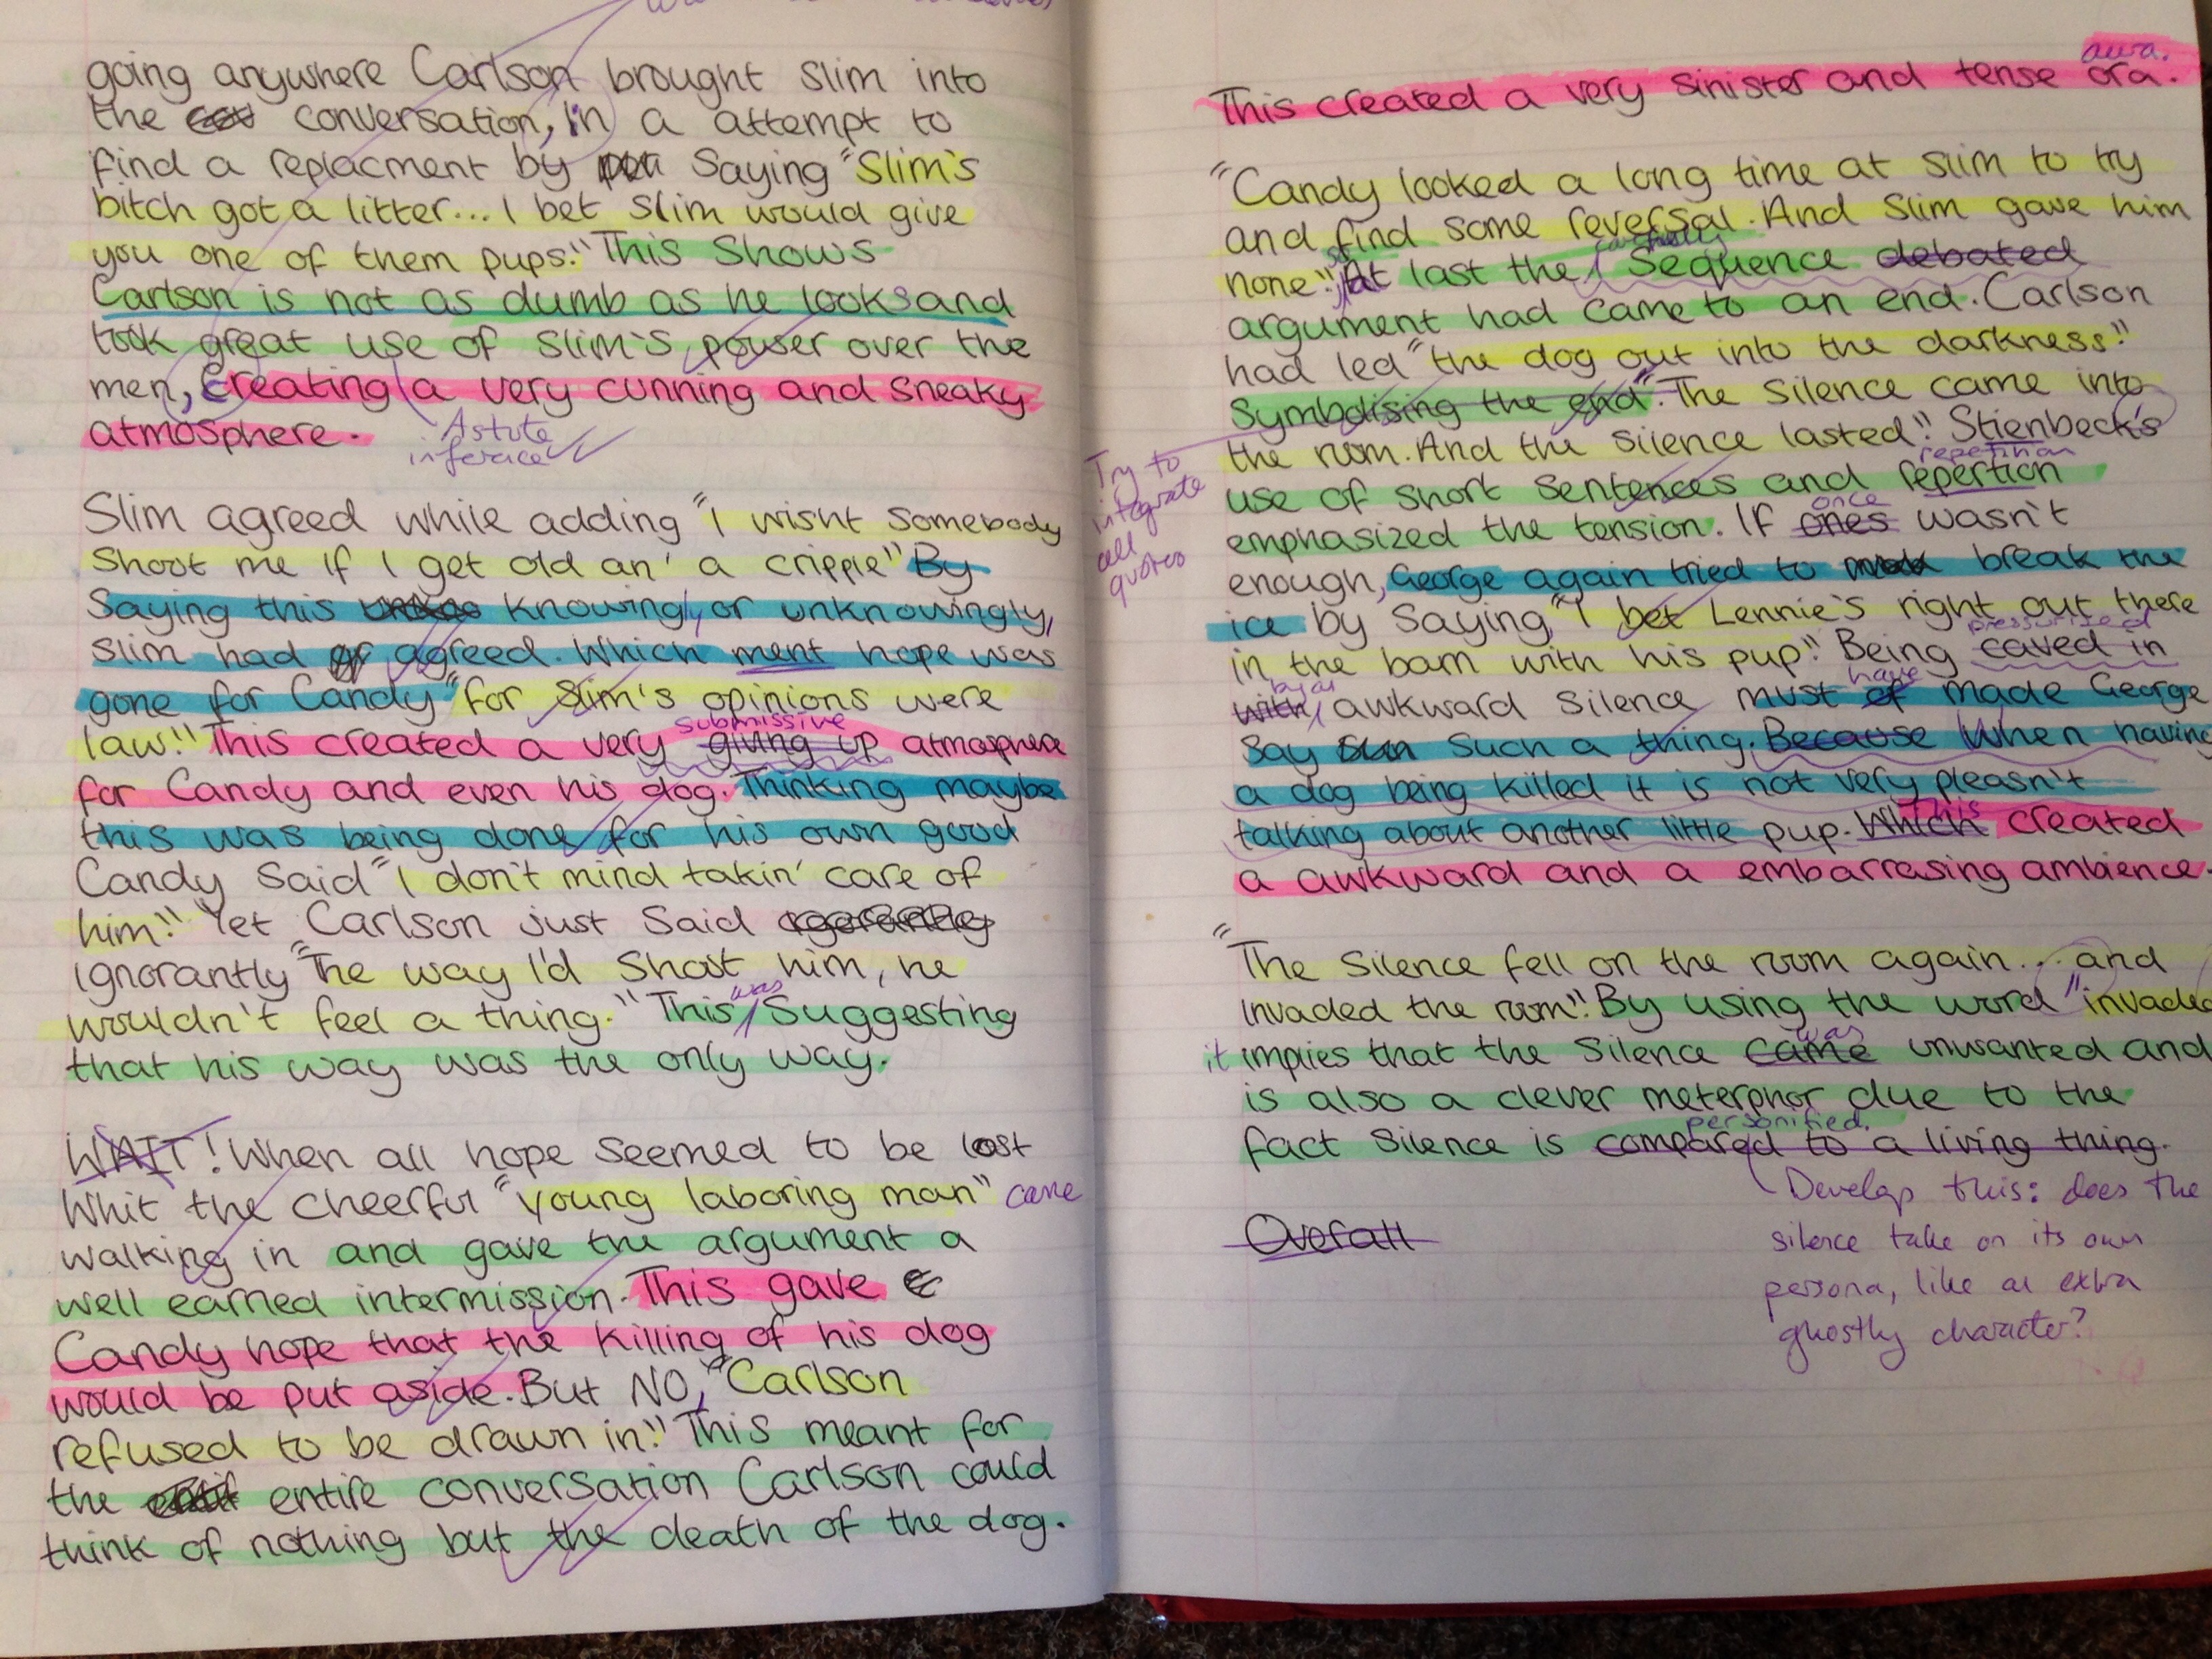 going anywhere Carlson brought Slim into
the conversation, in a attempt to
find a replacment by saying "Slim's
bitch got a litter... I bet Slim would give
you one of them pups." This shows
Carlson is not as dumb as he looks and
took great use of Slim's power over the
men, creating a very cunning and sneaky
atmosphere.
Astute
inference
Slim agreed while adding "I wisht somebody
shoot me if I get old an' a cripple" By
saying this knowingly or unknowingly,
Slim had agreed. Which ment hope was
gone for Candy "for Slim's opinions were
law." This created a very giving up atmosphere
submissive
for Candy and even his dog. Thinking maybe
this was being done for his own good
Candy said "I don't mind takin' care of
him." Yet Carlson just said
ignorantly "The way I'd shoot him, he
wouldn't feel a thing." This suggesting
was
that his way was the only way.
WAIT! When all hope seemed to be lost
Whit the cheerful "young laboring man" came
walking in and gave the argument a
well earned intermission. This gave
Candy hope that the killing of his dog
would be put aside. But NO, "Carlson
refused to be drawn in." This meant for
the entire conversation Carlson could
think of nothing but the death of the dog.
aura.
This created a very sinister and tense ora.
"Candy looked a long time at Slim to try
and find some reversal. And Slim gave him
none." At last the sequence debated
argument had came to an end. Carlson
had led "the dog out into the darkness."
Symbolising the end. "The silence came into
the room. And the silence lasted." Stienbeck's
repetition
use of short sentences and repertion
emphasized the tension. If ones wasn't
once
enough, George again tried to break the
ice by saying, "I bet Lennie's right out there
in the barn with his pup." Being caved in
pressurised
with awkward silence must of made George
by an
have
say such a thing. Because When having
a dog being killed it is not very pleasn't
talking about another little pup. Which created
This
a awkward and a embarrasing ambience.
Try to
integrate
all
quotes
"The silence fell on the room again... and
invaded the room." By using the word "invaded
it implies that the silence came unwanted and
was
is also a clever meterphor due to the
fact silence is compared to a living thing.
personified.
Develop this: does the
silence take on its own
persona, like an extra
ghostly character?
Overall